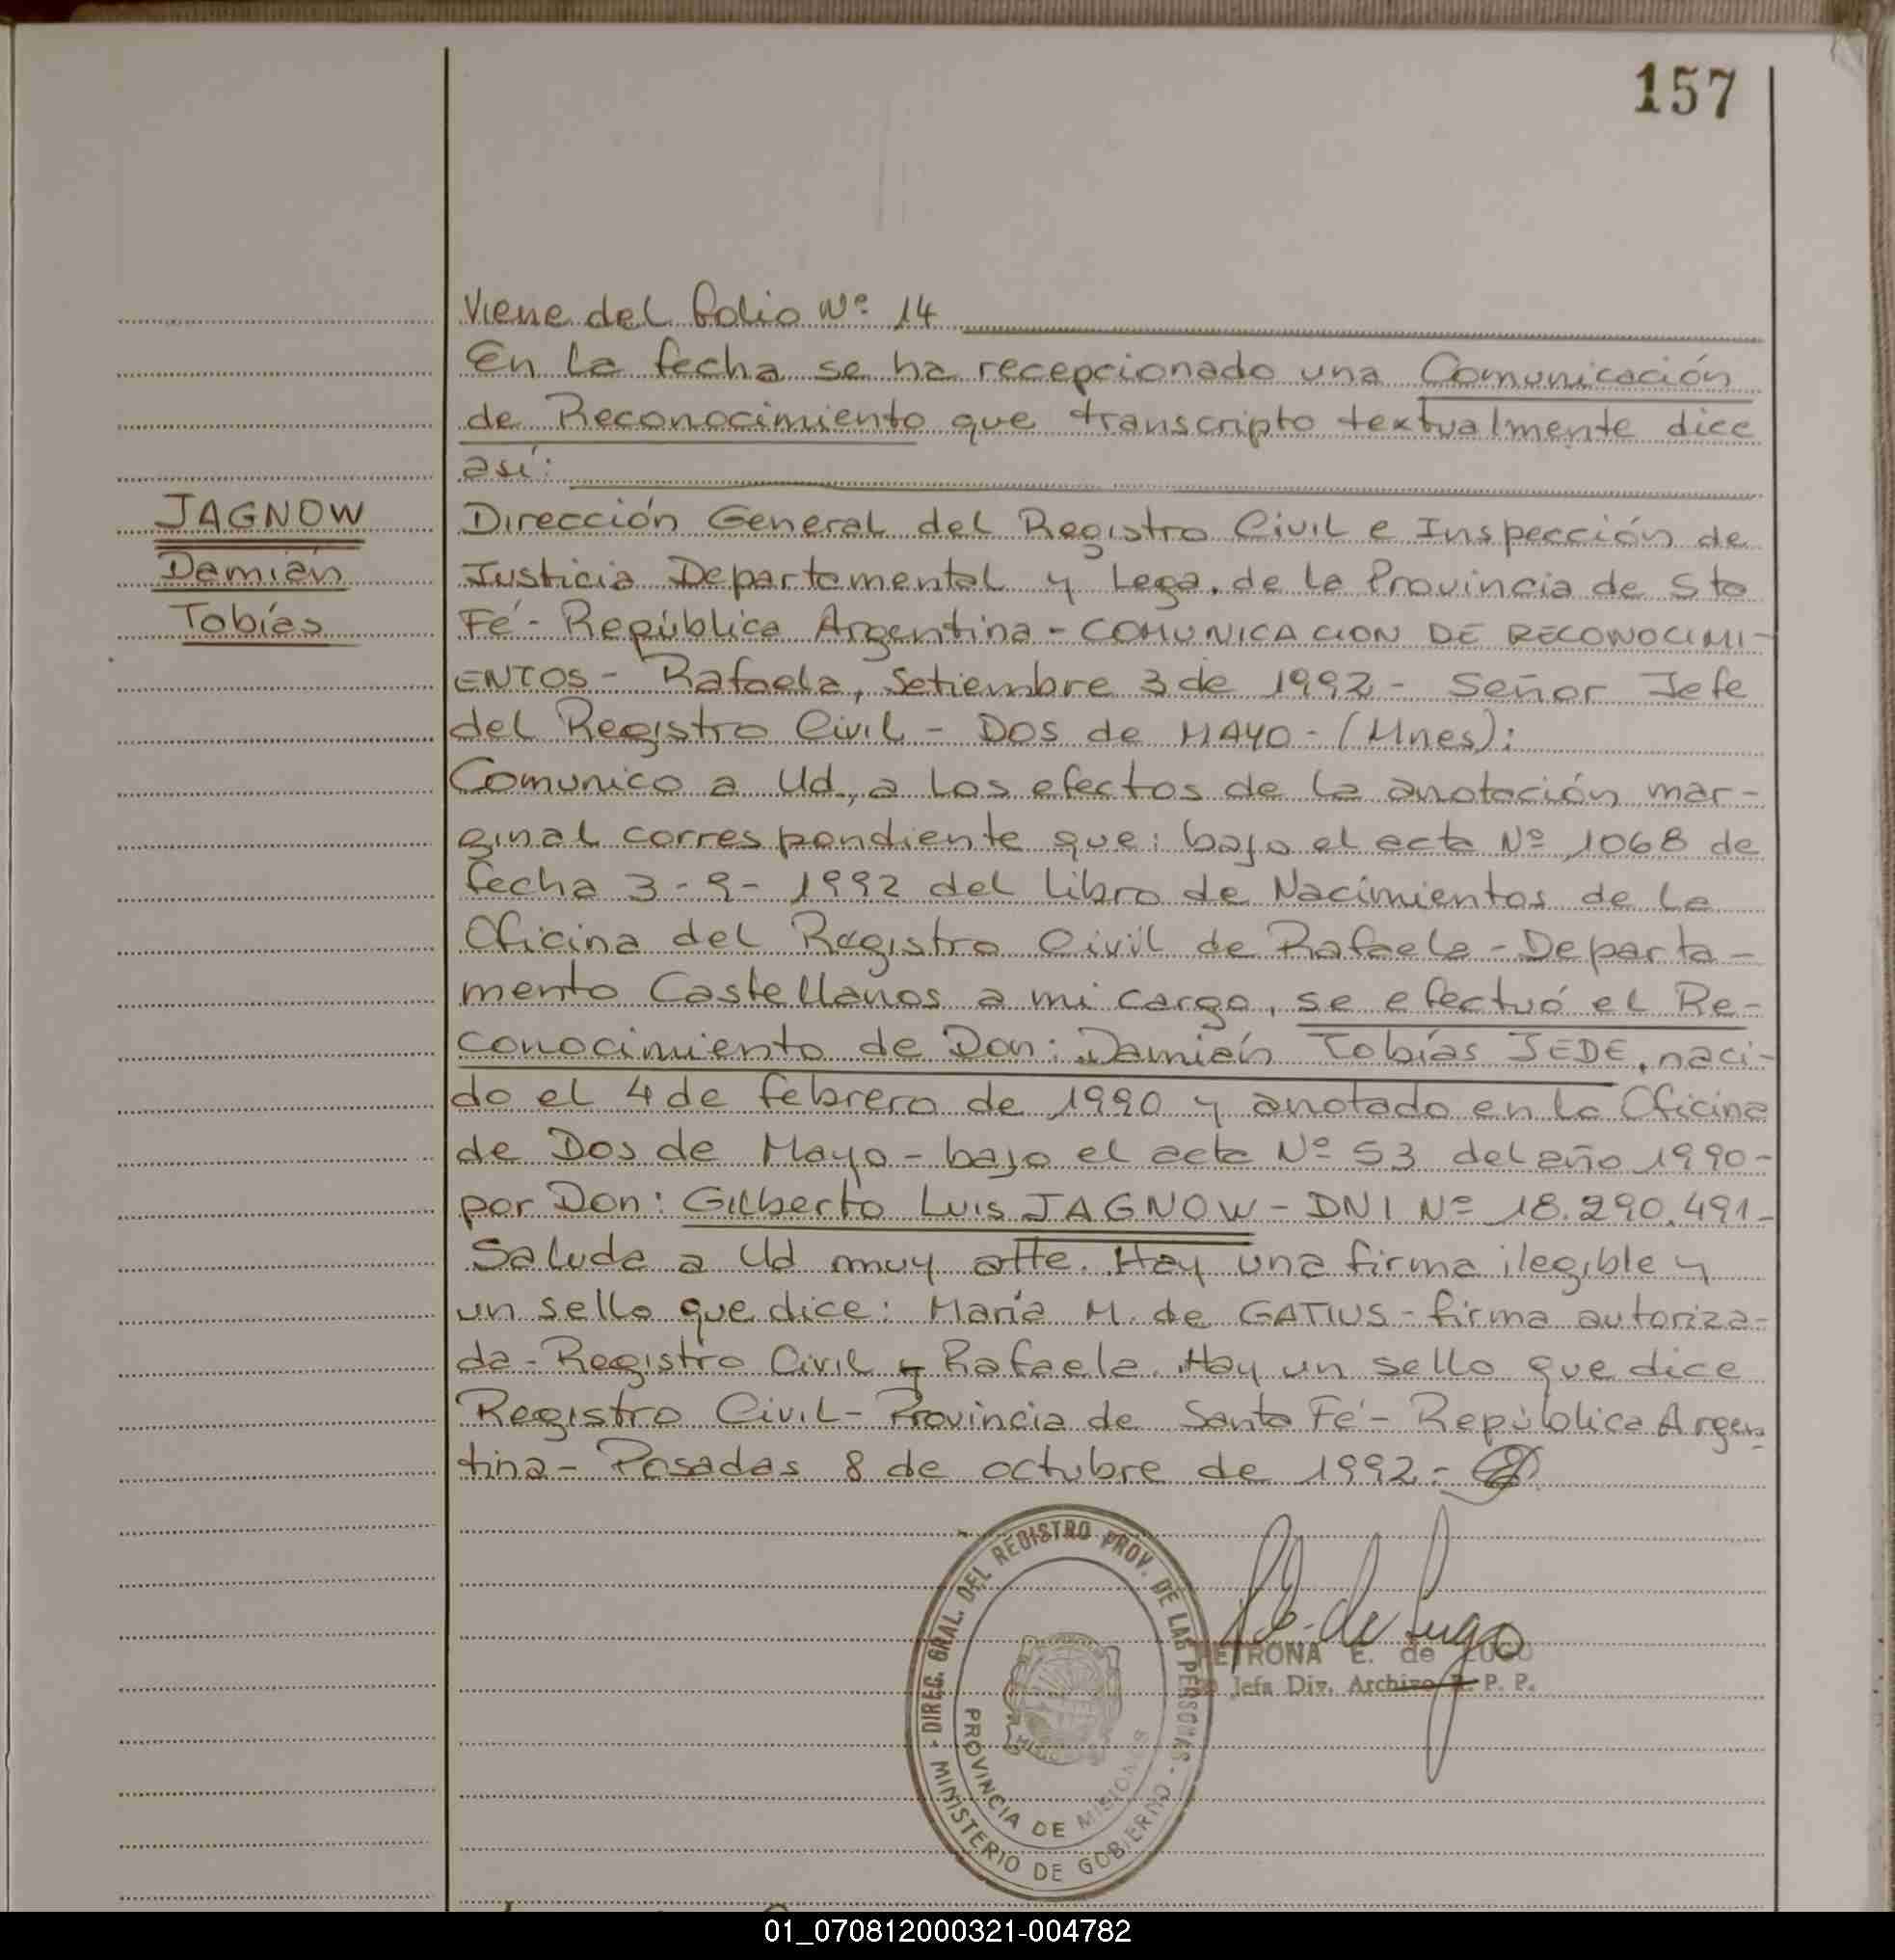 157
Viene del folio Nº 14
En la fecha se ha recepcionado una Comunicación
de Reconocimiento que transcripto textualmente dice
así:
JAGNOW
Damián
Tobías
Dirección General del Registro Civil e Inspección de
Justicia Departamental y Lega. de la Provincia de Sta
Fé - República Argentina - COMUNICACION DE RECONOCIMI-
ENTOS - Rafaela, Setiembre 3 de 1992 - Señor Jefe
del Registro Civil - DOS de MAYO - (Mnes):
Comunico a Ud., a los efectos de la anotación mar-
ginal correspondiente que: bajo el acta Nº 1068 de
fecha 3-9-1992 del libro de Nacimientos de la
Oficina del Registro Civil de Rafaela - Departa-
mento Castellanos a mi cargo, se efectuó el Re-
conocimiento de Don: Damián Tobías JEDE, naci-
do el 4 de febrero de 1990 y anotado en la Oficina
de Dos de Mayo - bajo el acta Nº 53 del año 1990-
por Don: Gilberto Luis JAGNOW - DNI Nº 18.290.491-
Saluda a Ud muy atte. Hay una firma ilegible y
un sello que dice: María M. de GATIUS - firma autoriza-
da - Registro Civil - Rafaela. Hay un sello que dice
Registro Civil - Provincia de Santa Fé - República Argen
tina - Posadas 8 de octubre de 1992.-
DIREC. GRAL. DEL REGISTRO PROV. DE LAS PERSONAS
PROVINCIA DE MISIONES
MINISTERIO DE GOBIERNO
P.E. de Lugo
PETRONA E. de LUGO
Jefa Div. Archivo R. P. P.
01_070812000321-004782